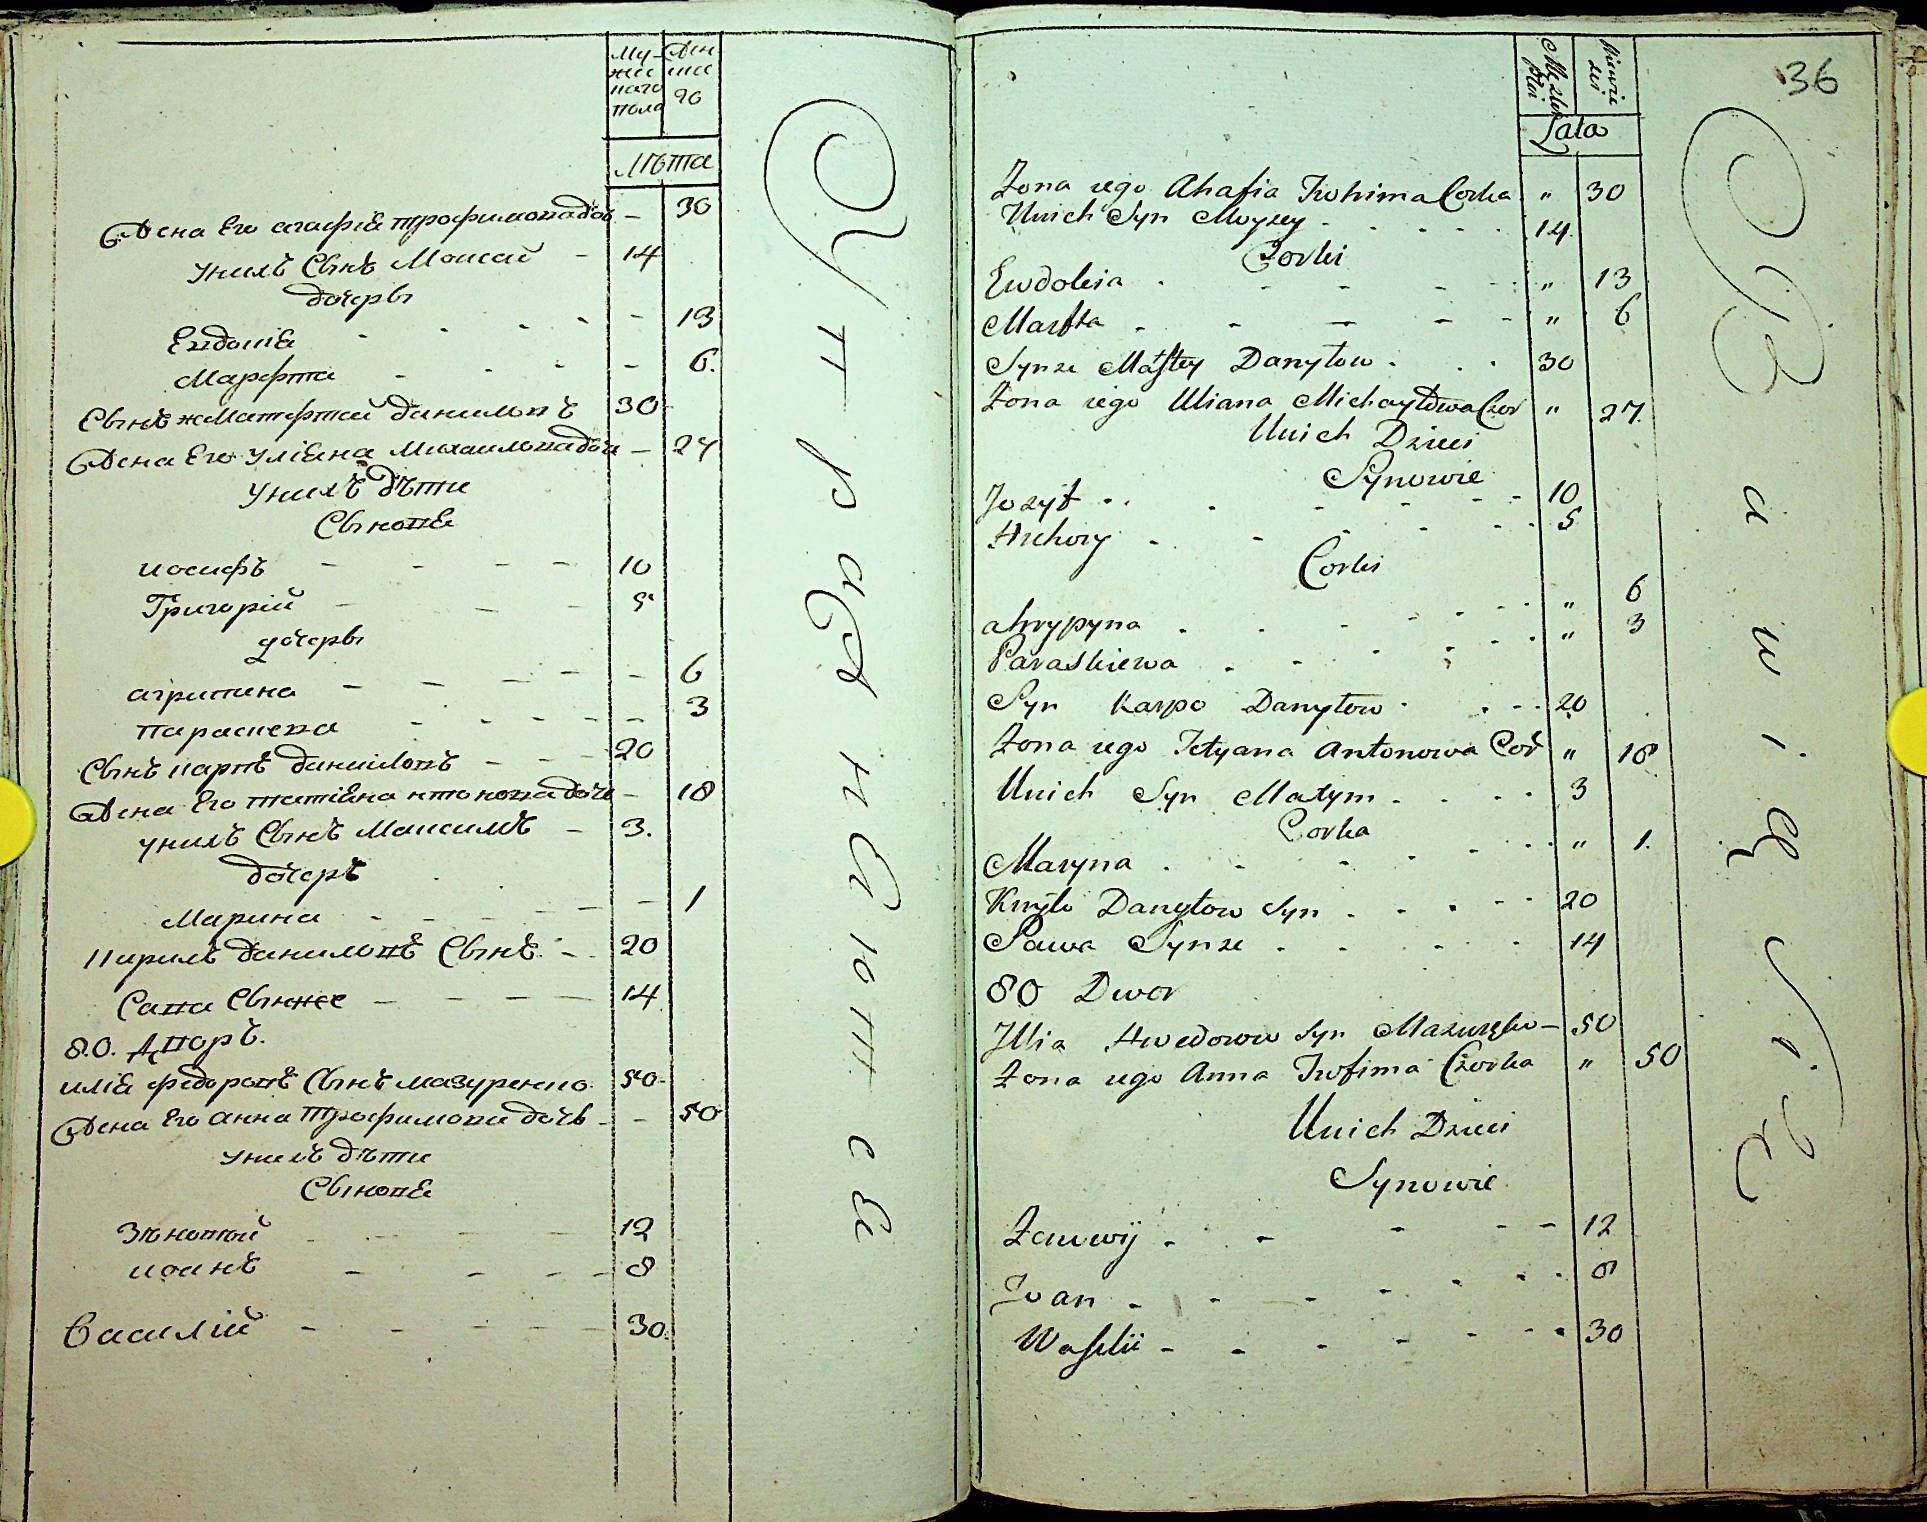 Му- Жен
жес ска
наго
пола 96
Лѣта
Жена Его агафїя трофимова доч – 30
унихъ Сынъ Моисей – 14
дочеры
Евдокїя – 13
Марфта – – – – 6.
Сынъ ж Матфтей даниловъ 30
Жена Его улїяна Михаилова доч – 27
унихъ дѣти
Сыновя
иосифъ – – – – 10
Григорїй – – – 5
дочеры
агрипина – – – – – 6
параскева – – – – – 3
Сынъ карпъ даниловъ – – – 20
Жена Его татїяна нтонова дочь – 18
унихъ Сынъ Максимъ – 3.
дочеръ
Марина – – – – – 1
Кирилъ даниловъ Сынъ – 20
Сава Сынже – – – – 14
80. Дворъ.
илїя федоровъ Сынъ мазуренко 50
Жена Его анна трофимова дочь – – 50
унихъ дѣти
Сыновя
Зѣновїй – – – 12
иоанъ – – – – 8
Василїй – – – – – 30.
Управляюше
36
Męzkiey Płci
Lata
Zona iego Ahafia Trohima Corka " 30
Unich Syn Moyzey 14
Corki
Ewdokia " 13
Marfta " 6
Synze Matftey Danyłow 30
Zona iego Uliana Michayłowa Cor " 27
Unich Dzieci
Synowie
Jozyf 10
Hrehory 5
Corki
ahrypyna " 6
Paraskiewa " 3
Syn Karpo Danyłow 20
Zona iego Tetyana Antonowa Cor " 18
Unich Syn Maxym 3
Corka
Maryna " 1.
Kiryło Danyłow Syn 20
Sawa Synze 14
80 Dwor
Illia Hwedorow Syn Mazurenko – 50
Zona iego Anna Trofima Corka " 50
Unich Dzieci
Synowie
Zenowij 12
Iwan 8
Wasilii 30